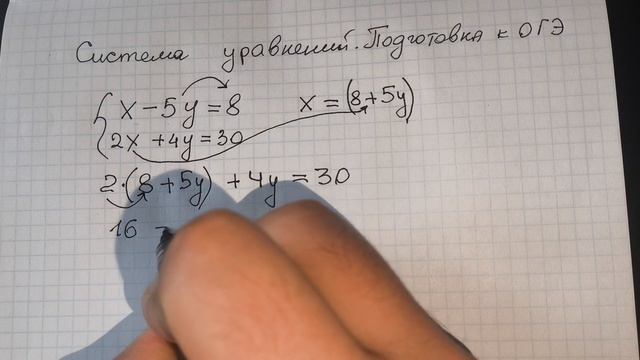 Система уравнений. Подготовка к ОГЭ
x - 5y = 8 x = (8 + 5y)
2x + 4y = 30
2·(8 + 5y) + 4y = 30
16